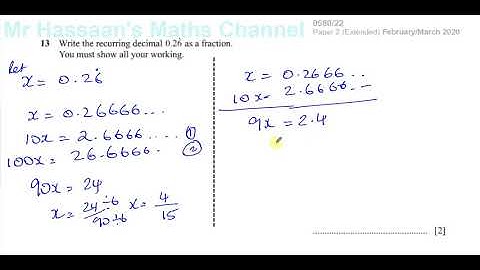 Mr Hassaan's Maths Channel
0580/22
Paper 2 (Extended) February/March 2020
13 Write the recurring decimal 0.26̇ as a fraction.
You must show all your working.
let
x = 0.26̇
x = 0.26666...
10x = 2.6666.... ①
100x = 26.6666. ②
90x = 24
x = 24÷6/90÷6 x = 4/15
x = 0.2666...
10x = 2.6666...
9x = 2.4
[2]